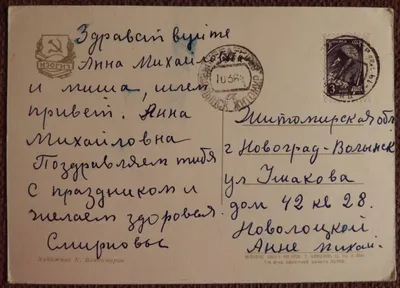 Здравствуйте
Анна Михайловна
и миша, шлем
привет. Анна
Михайловна
Поздравляем тибя
с праздником и
желаем здоровья.
Смирновы
ИЗОГИЗ
3
Житомирская обл
г Новоград-Волынск
ул Ушакова
дом 42 кв 28.
Новолоцкой
Анне михай.